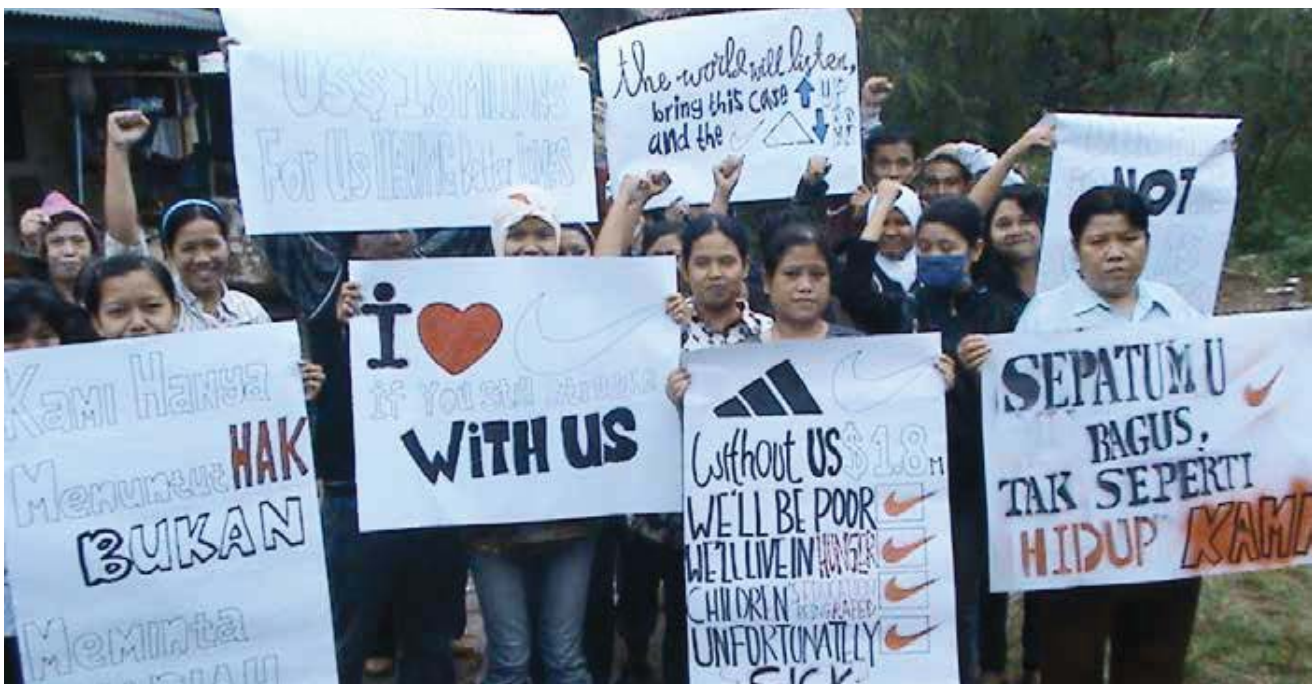 US$ 1.8 Million
For Us
the world will listen,
bring this case UP
and the
NOT
Kami Hanya
Menuntut HAK
BUKAN
Meminta
I
if You Still
WiTH US
Without US $1.8 M
WE'LL BE POOR
WE'LL LIVE IN HUNGER
CHILDREN
UNFORTUNATLLY
SICK
SEPATUMU
BAGUS,
TAK SEPERTI
HIDUP KAMI